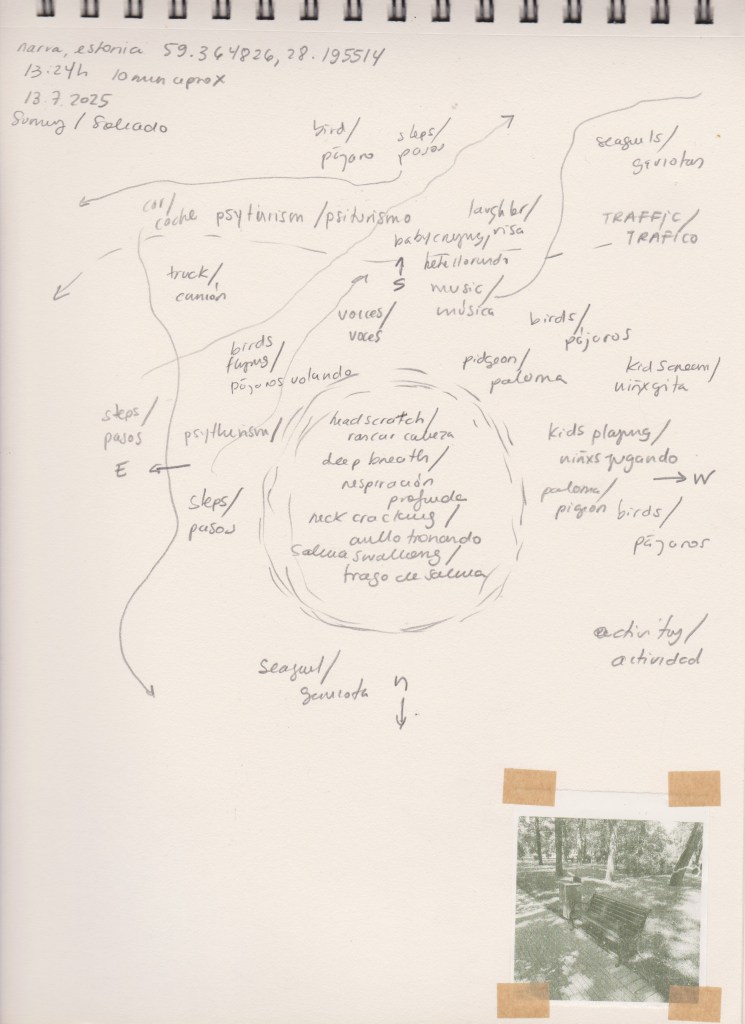 narva, estonia 59.364826, 28.195514
13:24h 10 min aprox
13.7.2025
Sunny / Soleado
bird/
pájaro
steps/
pasos
seagulls/
gaviotas
car/
coche
psyturism / psiturismo
laughter/
risa
baby crying,
TRAFFIC/
TRAFICO
truck/
camión
S
music/
música
voices/
voces
birds/
pájaros
birds
flying/
pájaros volando
pidgeon/
paloma
kid scream/
niñx grita
steps/
pasos
psyturism/
E
head scratch/
rascar cabeza
deep breath/
respiración
profunda
neck cracking/
cuello tronando
saliva swallowing/
trago de saliva
kids playing/
niñxs jugando
W
paloma/
pigeon
birds/
pájaros
steps/
pasos
activity/
actividad
seagull/
gaviota
n